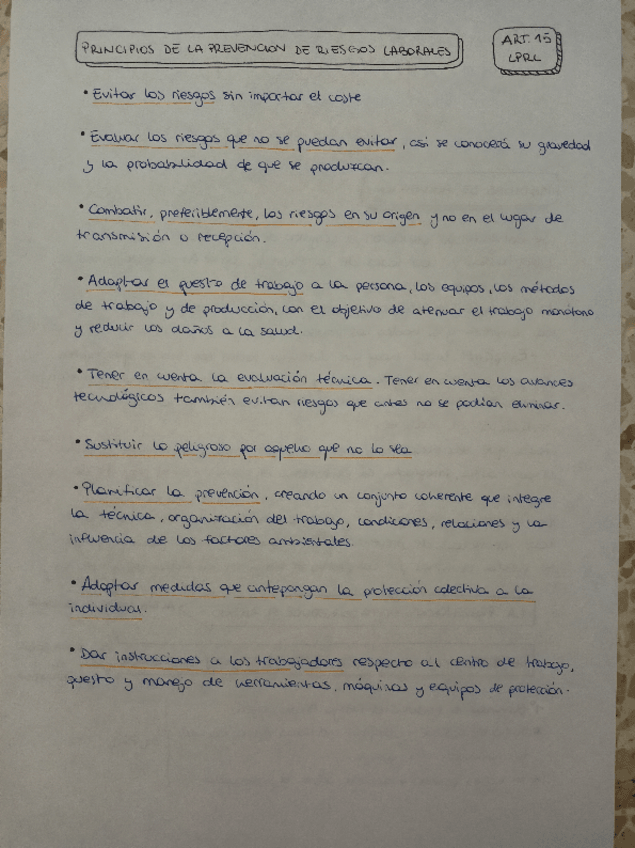 PRINCIPIOS DE LA PREVENCION DE RIESGOS LABORALES
ART. 15
LPRL
• Evitar los riesgos sin importar el coste
• Evaluar los riesgos que no se puedan evitar, así se conocerá su gravedad
y la probabilidad de que se produzcan.
• Combatir, preferiblemente, los riesgos en su origen y no en el lugar de
transmisión o recepción.
• Adaptar el puesto de trabajo a la persona, los equipos, los métodos
de trabajo y de producción, con el objetivo de atenuar el trabajo monótono
y reducir los daños a la salud.
• Tener en cuenta la evaluación técnica. Tener en cuenta los avances
tecnológicos también evitan riesgos que antes no se podían eliminar.
• Sustituir lo peligroso por aquello que no lo sea
• Planificar la prevención, creando un conjunto coherente que integre
la técnica, organización del trabajo, condiciones, relaciones y la
influencia de los factores ambientales.
• Adoptar medidas que antepongan la protección colectiva a la
individual.
• Dar instrucciones a los trabajadores respecto al centro de trabajo,
puesto y manejo de herramientas, máquinas y equipos de protección.